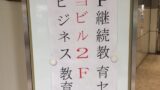 Ｐ継続教育セ
ビル２Ｆ
ビジネス教育